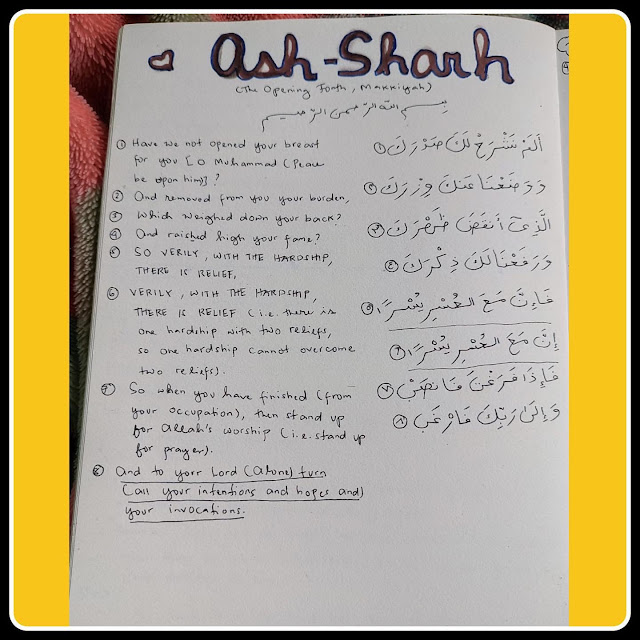 Ash-Sharh
(The Opening Forth, Makkiyah)
بسم الله الرحمن الرحيم
① Have we not opened your breast
for you [O Muhammad (Peace
be upon him)]?
② And removed from you your burden,
③ Which weighed down your back?
④ And raished high your fame?
⑤ SO VERILY, WITH THE HARDSHIP,
THERE IS RELIEF,
⑥ VERILY, WITH THE HARDSHIP,
THERE IS RELIEF (i.e. there is
one hardship with two reliefs,
so one hardship cannot overcome
two reliefs).
⑦ So when you have finished (from
your occupation), then stand up
for Allah's worship (i.e. stand up
for prayer).
⑧ And to your Lord (Alone) turn
(all your intentions and hopes and)
your invocations.
أَلَمْ نَشْرَحْ لَكَ صَدْرَكَ ①
وَوَضَعْنَا عَنكَ وِزْرَكَ ②
الَّذِىٓ أَنقَضَ ظَهْرَكَ ③
وَرَفَعْنَا لَكَ ذِكْرَكَ ④
فَإِنَّ مَعَ الْعُسْرِ يُسْرًا ⑤
إِنَّ مَعَ الْعُسْرِ يُسْرًا ⑥
فَإِذَا فَرَغْتَ فَانصَبْ ⑦
وَإِلَىٰ رَبِّكَ فَارْغَب ⑧